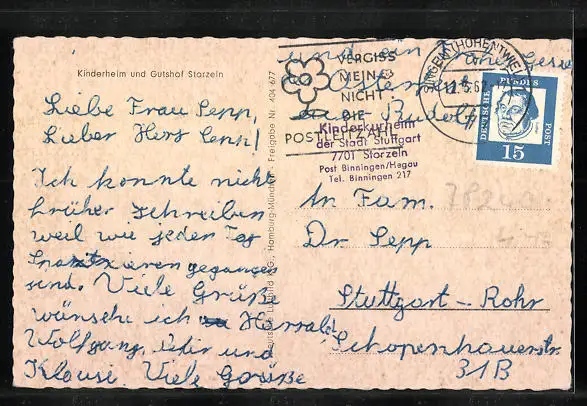 Kinderheim und Gutshof Storzeln
Liebe Frau Sepp,
Lieber Herr Sepp!
Ich konnte nicht
früher schreiben
weil wir jeden Tag
gegangen
sind. Viele Grüße
wünsche ich Harrald
Wolfgang, und
Klausi. Viele Grüße
und ein
Rudolf
VERGISS
MEIN
NICHT
DIE
POSTLEITZAHL
SINGEN (HOHENTWIEL)
DEUTSCHE BUNDESPOST
15
Kinderkurheim
der Stadt Stuttgart
7701 Storzeln
Post Binningen/Hegau
Tel. Binningen 217
An Fam.
Dr Sepp
Stuttgart-Rohr
Schopenhauerstr.
31B
Hamburg-München - Freigabe Nr. 404 677